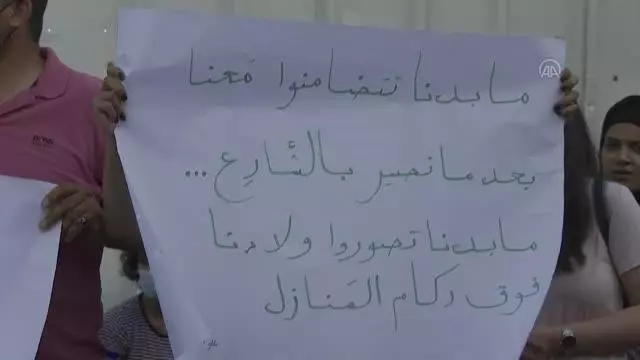 ما بدنا تتضامنوا مَعنا
بعد ما نصير بالشَّارِع ...
ما بدنا تصوروا ولادنا
فوق ركام المَنازل
AA